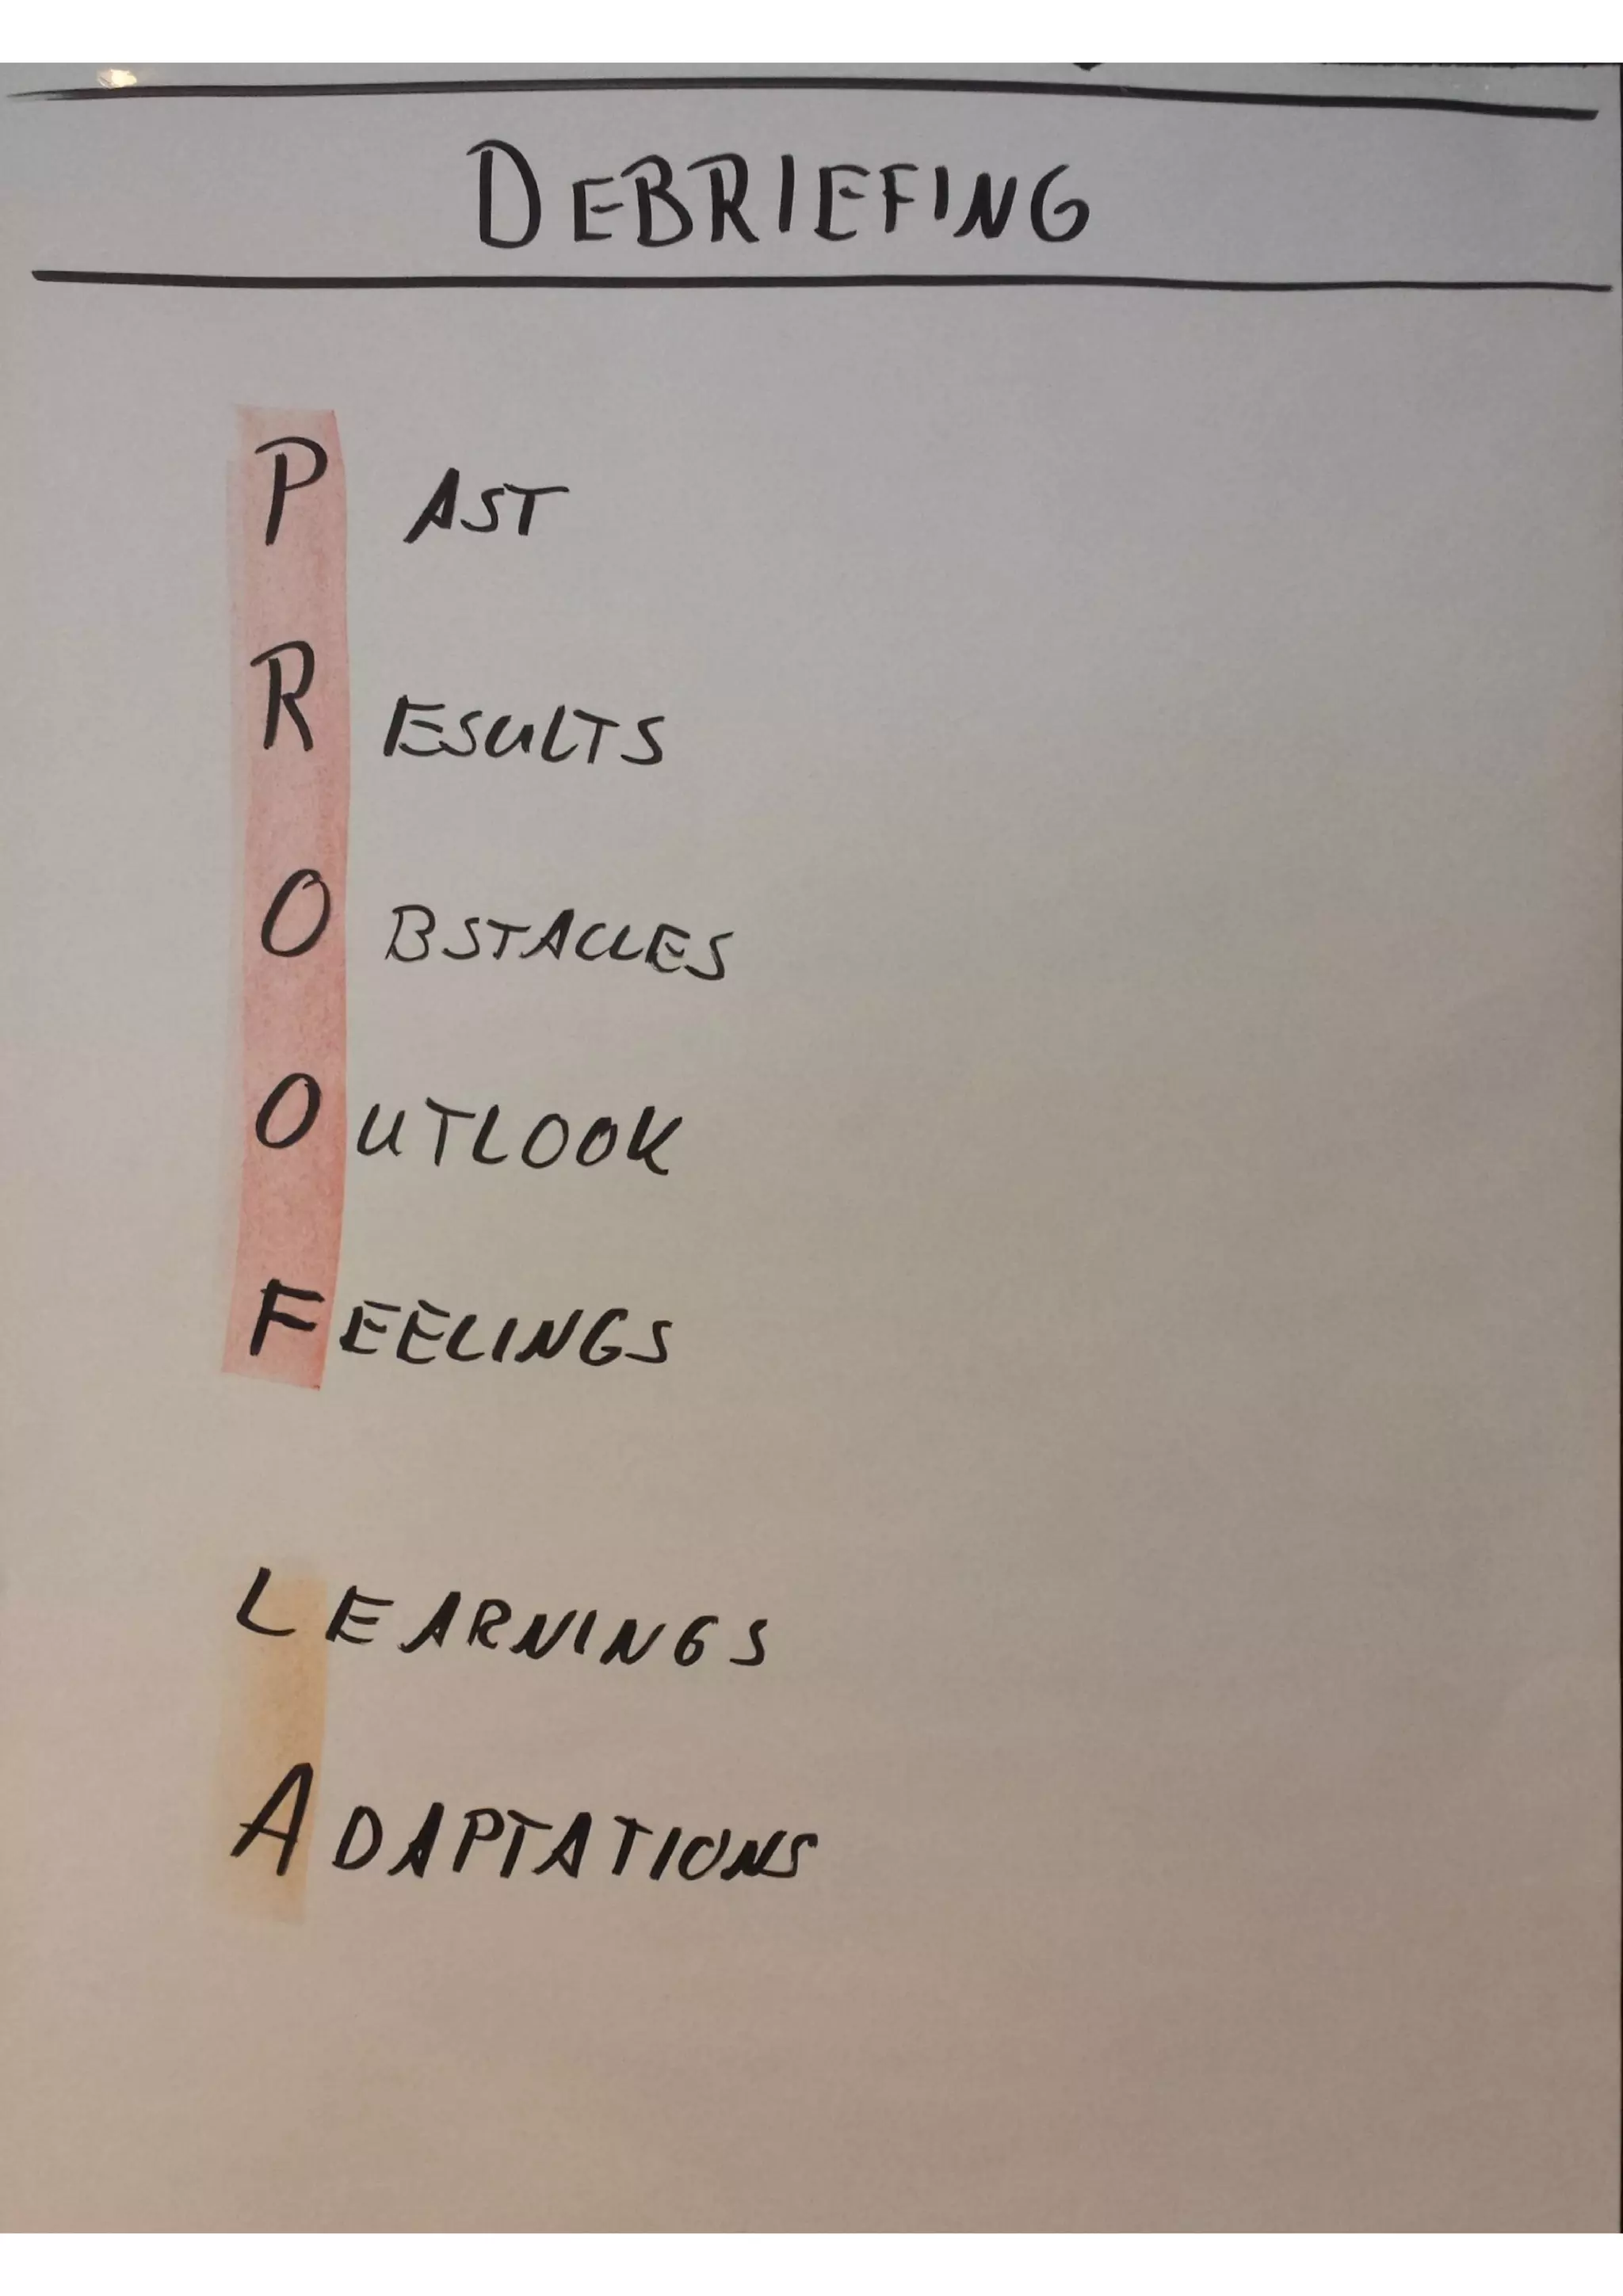 DEBRIEFING
P AST
R ESULTS
O BSTACLES
O UTLOOK
FEELINGS
LEARNINGS
ADAPTATIONS